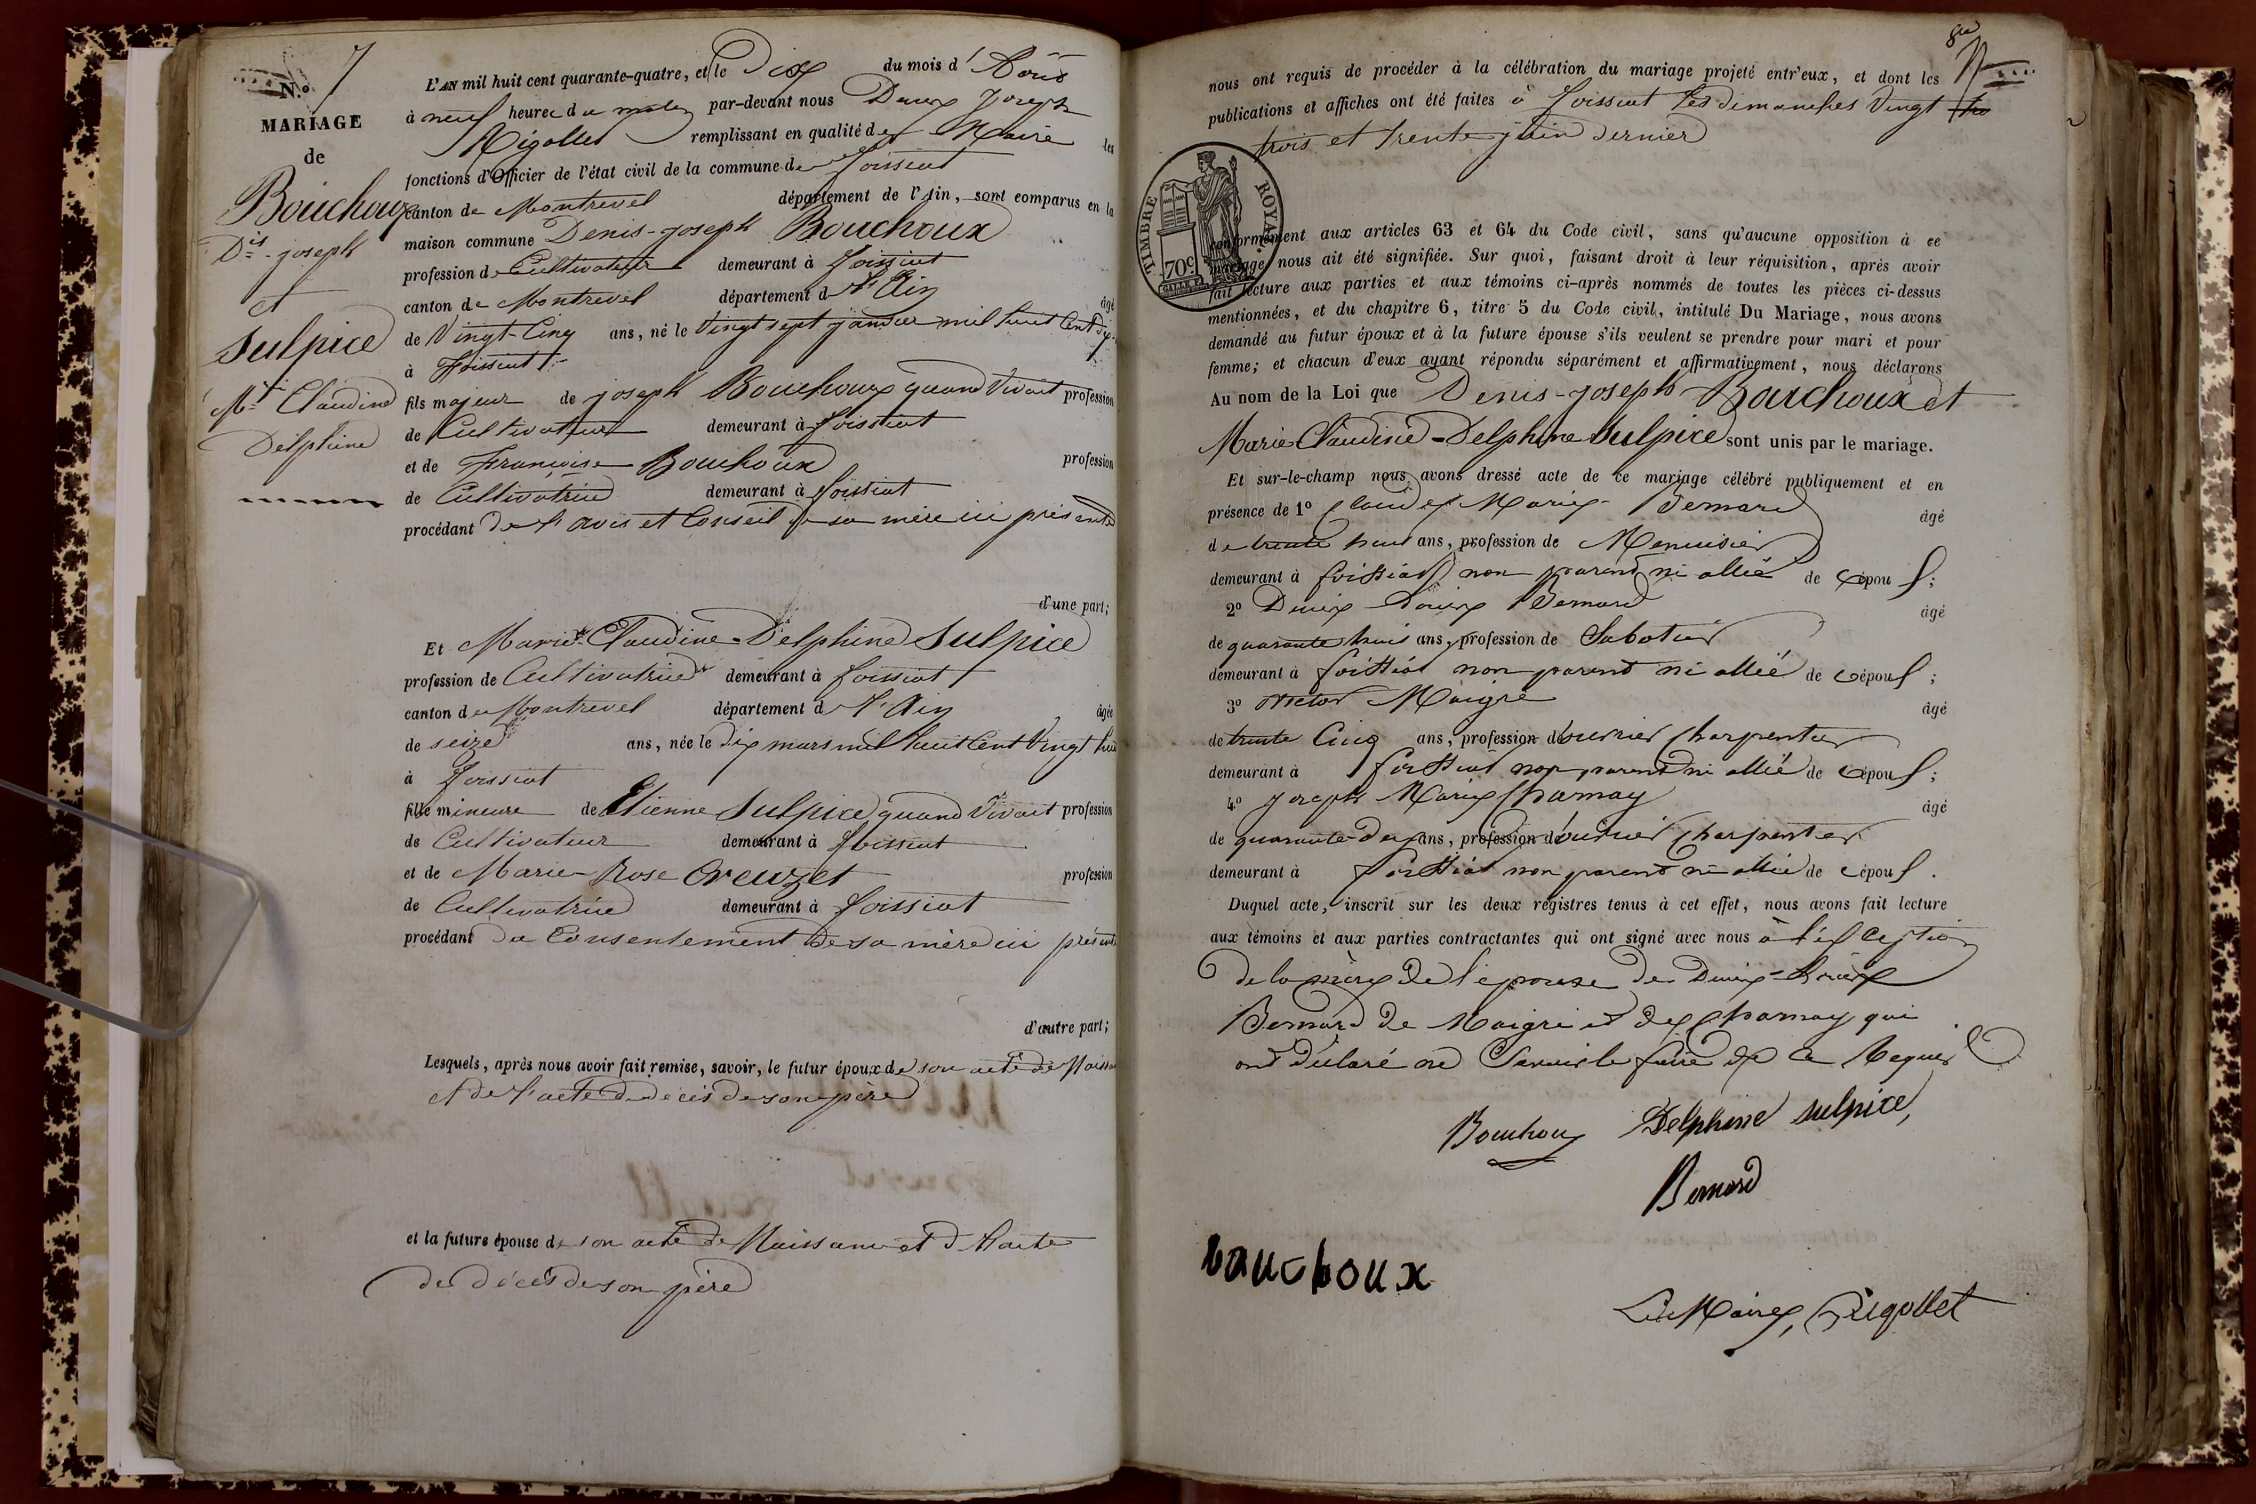 N.º 7
MARIAGE
de
Bouchoux
Dis-joseph
et
Sulpice
Mie Claudine
Delphine
L'AN mil huit cent quarante-quatre, et le Dix du mois d'
à neuf heures du matin par-devant nous Denis Joseph
Rigollet remplissant en qualité de Maire les
fonctions d'Officier de l'état civil de la commune de foissiat
canton de Montrevel département de l'Ain, sont comparus en la
maison commune Denis-joseph Bouchoux
profession de Cultivateur demeurant à foissiat
canton de Montrevel département de l'Ain âgé
de Vingt-Cinq ans, né le Vingt sept janvier mil huit Cent dix-
à foissiat
fils majeur de joseph Bouchoux quand Vivait profession
de Cultivateur demeurant à foissiat
et de françoise Bouchoux profession
de Cultivatrice demeurant à foissiat
procédant de l'avis et Conseil de sa mère ici présente
d'une part;
Et Marie-Claudine-Delphine Sulpice
profession de Cultivatrice demeurant à foissiat
canton de Montrevel département de l'Ain âgée
de seize ans, née le dix mars mil huit Cent Vingt huit
à foissiat
fille mineure de Etienne Sulpice quand Vivait profession
de Cultivateur demeurant à foissiat
et de Marie-Rose Creuzet profession
de Cultivatrice demeurant à foissiat
procédant du Consentement de sa mère ici présente
d'autre part;
Lesquels, après nous avoir fait remise, savoir, le futur époux de son acte de Naissance
et de l'acte de décès de son père
et la future épouse de son acte de Naissance et d l'acte
de décès de son père
nous ont requis de procéder à la célébration du mariage projeté entr'eux, et dont les
publications et affiches ont été faites à foissiat les dimanches Vingt
trois et trente juin dernier
TIMBRE ROYAL
70c
conformément aux articles 63 et 64 du Code civil, sans qu'aucune opposition à ce
mariage nous ait été signifiée. Sur quoi, faisant droit à leur réquisition, après avoir
fait lecture aux parties et aux témoins ci-après nommés de toutes les pièces ci-dessus
mentionnées, et du chapitre 6, titre 5 du Code civil, intitulé Du Mariage, nous avons
demandé au futur époux et à la future épouse s'ils veulent se prendre pour mari et pour
femme; et chacun d'eux ayant répondu séparément et affirmativement, nous déclarons
Au nom de la Loi que Denis-joseph Bouchoux et
Marie Claudine-Delphine Sulpice sont unis par le mariage.
Et sur-le-champ nous avons dressé acte de ce mariage célébré publiquement et en
présence de 1º Claude Marie Bernard âgé
de trente huit ans, profession de Menuisier
demeurant à foissiat non parent ni allié de l'épou ;
2º Denis Bernard âgé
de quarante huit ans, profession de Sabotier
demeurant à foissiat non parent ni allié de l'épou ;
3º Victor Maigre âgé
de trente Cinq ans, profession d'ouvrier Charpentier
demeurant à foissiat non parent ni allié de l'épou ;
4º Joseph Marie Charnay âgé
de quarante-deux ans, profession d'ouvrier Charpentier
demeurant à foissiat non parent ni allié de l'épou .
Duquel acte, inscrit sur les deux registres tenus à cet effet, nous avons fait lecture
aux témoins et aux parties contractantes qui ont signé avec nous à l'exception
de la mère de l'épouse de Denis
Bernard de Maigre et de Charnay qui
ont déclaré ne Savoir le faire de ce Requis
Bouchoux Delphine Sulpice,
Bernard
bouchoux
Le Maire, Rigollet